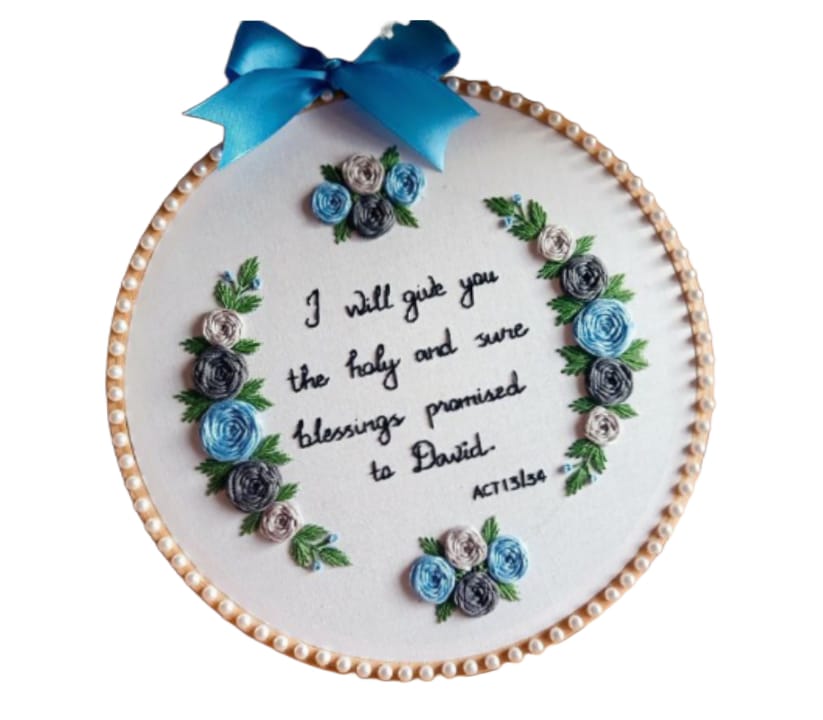 I will give you
the holy and sure
blessings promised
to David.
ACT 13/34